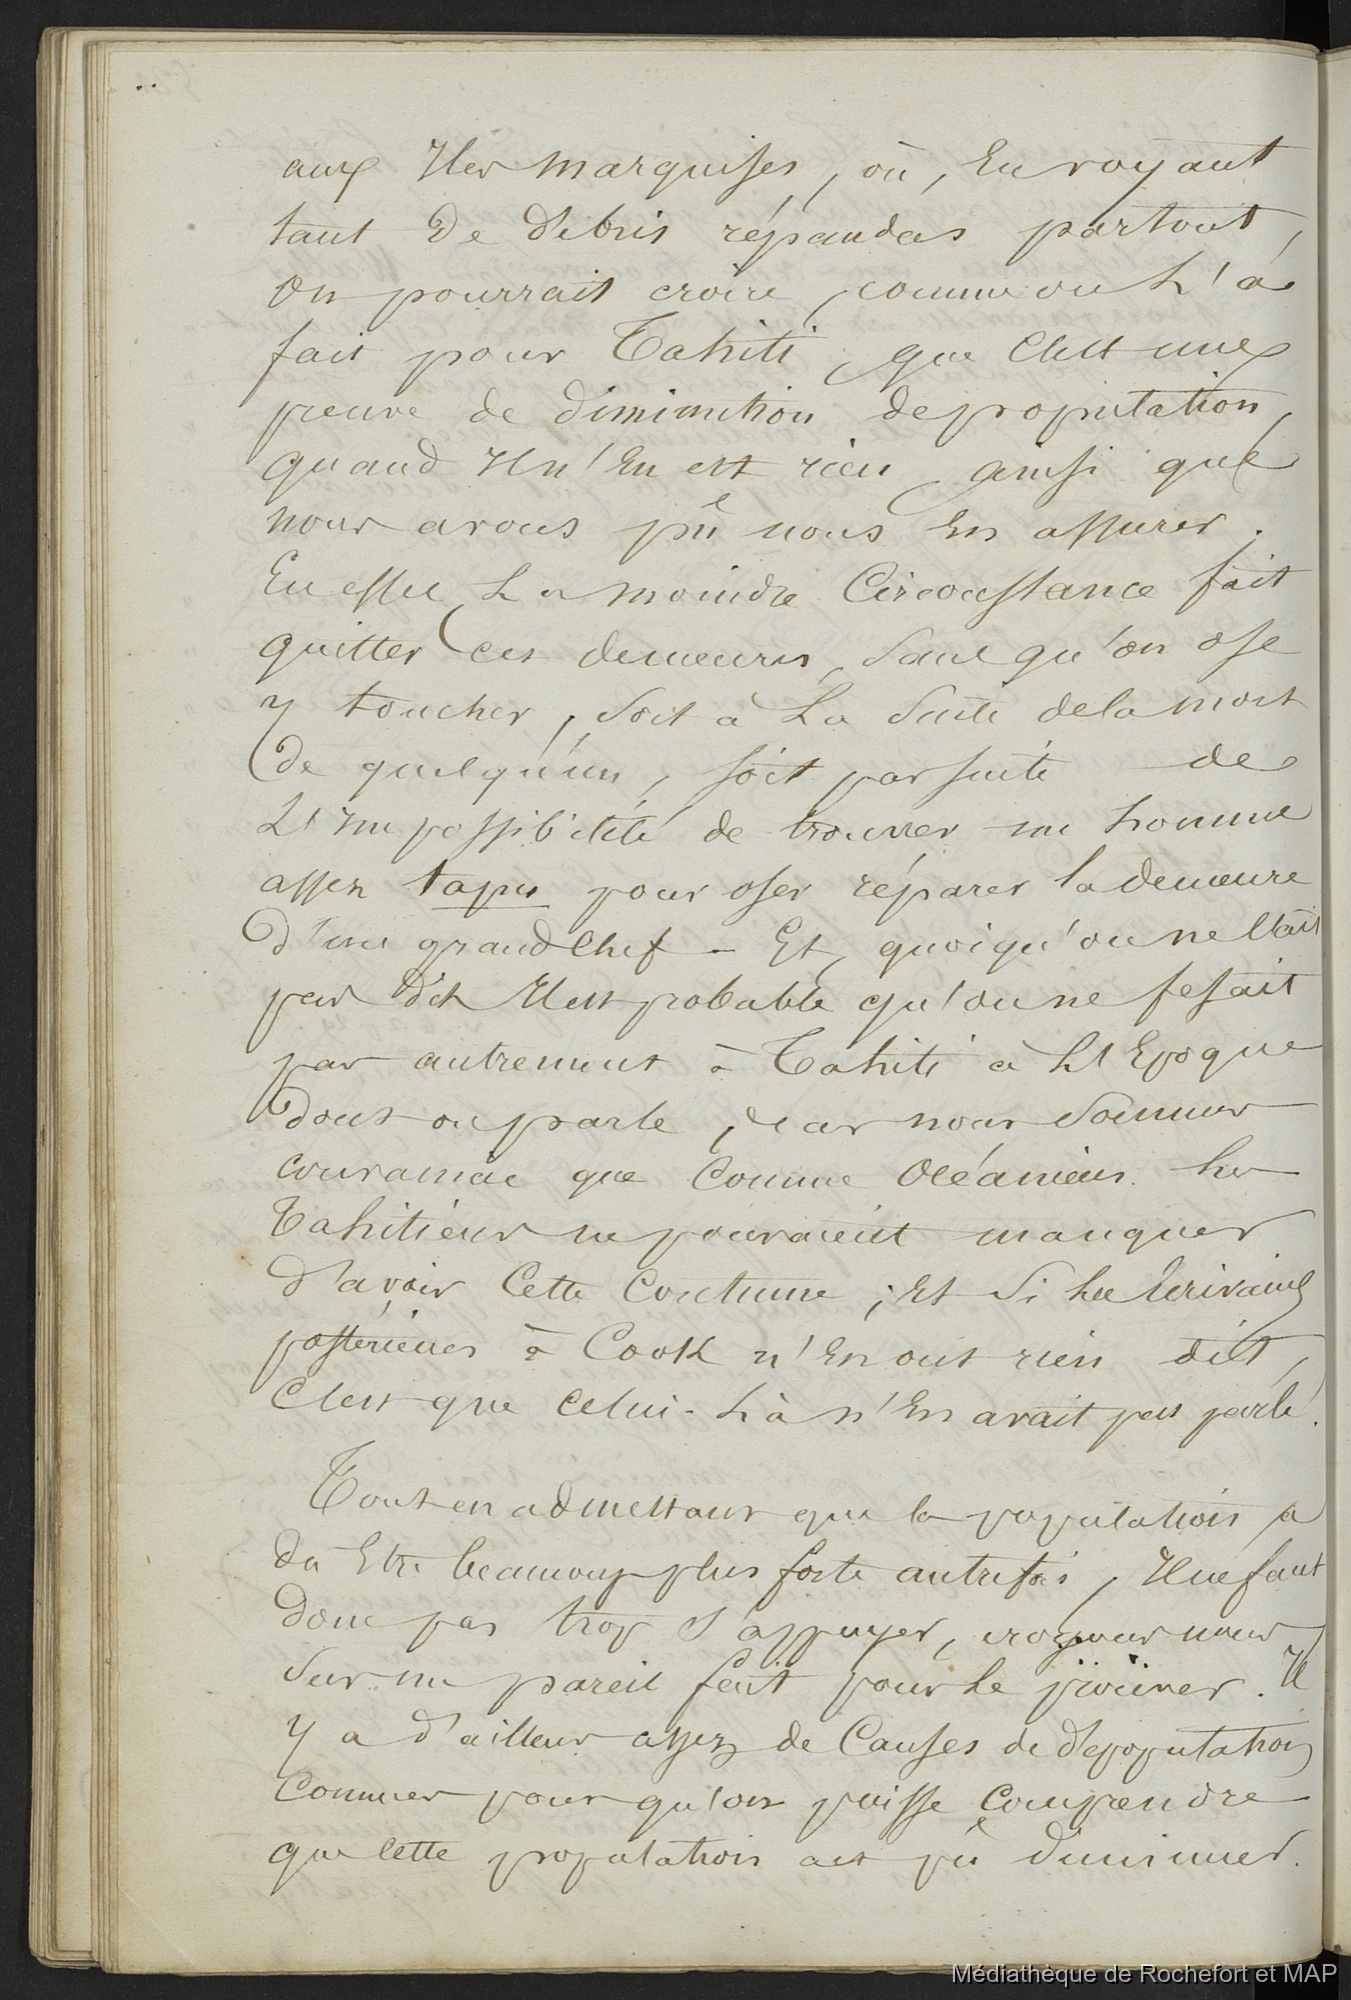 aux Iles marquises, où, En voyant
tant De débris répandus partout,
On pourrait croire, comme on L'a
fait pour Tahiti, que C'est une
preuve de diminution de population,
quand Il n'En est rien, ainsi que
nous avons pû nous En assurer.
En effet, La moindre Circonstance fait
quitter ces demeures, Sans qu'on ose
y toucher, Soit à La Suite de la mort
De quelqu'un, soit par suite de
L'Impossibilité de trouver un homme
assez tapu pour oser réparer la demeure
D'un grand Chef - Et, quoiqu'on ne l'ait
pas dit Il est probable qu'on ne fesait
pas autrement à Tahiti à L'Epoque
Dont on parle, car nous Sommes
convaincu que Comme Océaniens les
Tahitiens ne pouvaient manquer
D'avoir Cette Coutume ; Et Si les Ecrivains
postérieurs à Cook n'En ont rien dit,
C'est que Celui-Là n'En avait pas parlé.
Tout en admettant que la population a
du Etre beaucoup plus forte autrefois, Il ne faut
Donc pas trop S'appuyer, croyons nous
Sur un pareil fait pour Le prouver. Il
y a D'ailleurs assez de Causes de Dépopulation
Connues pour qu'on puisse Comprendre
que Cette population ait pû Diminuer.
Médiathèque de Rochefort et MAP